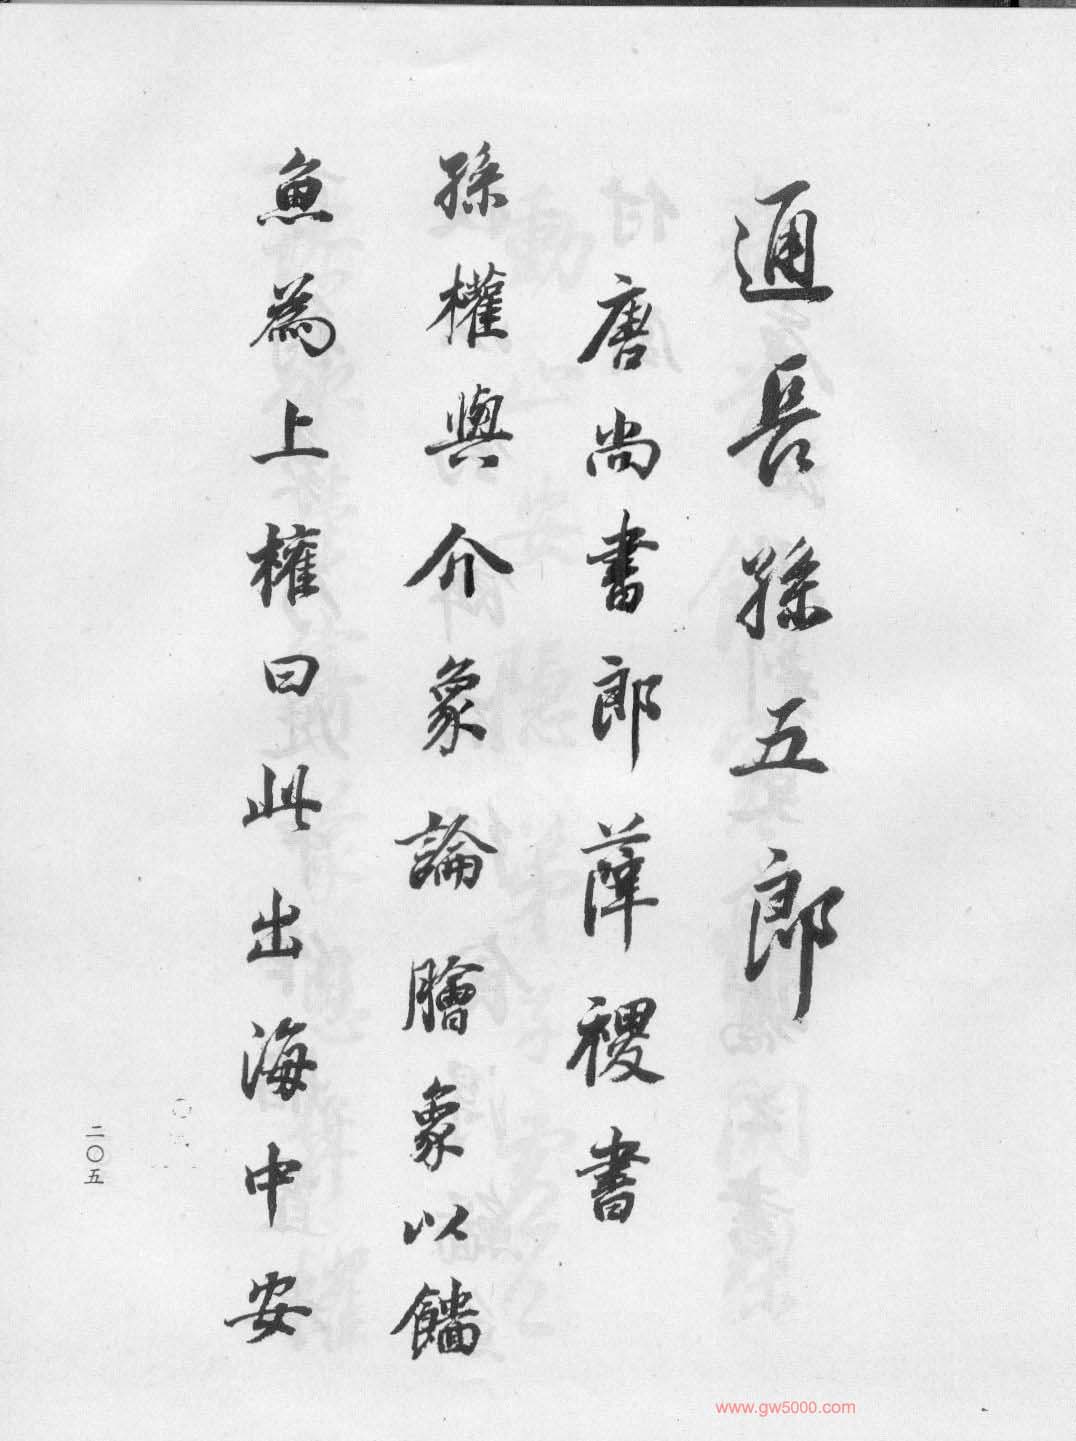 通長孫五郎
唐尚書郎薛稷書
孫權與介象論膾象以鯔
魚為上權曰此出海中安
二〇五
www.gw5000.com